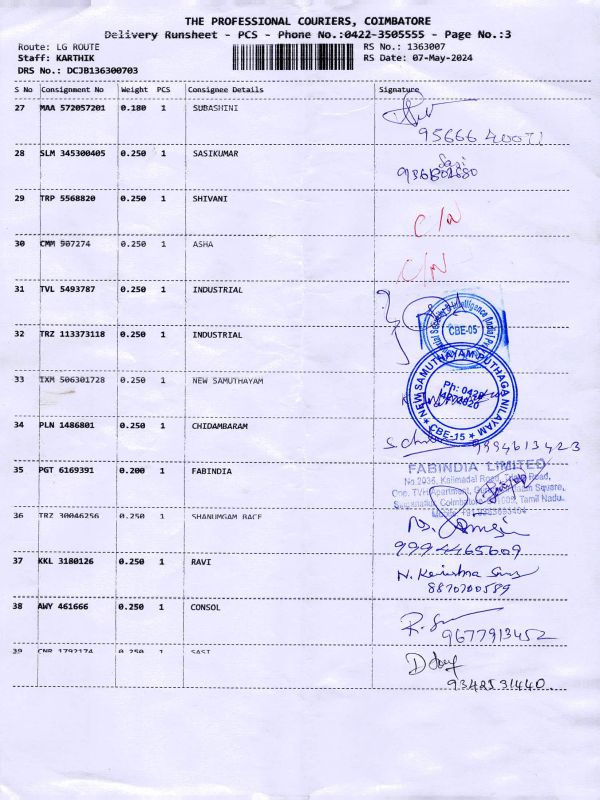 THE PROFESSIONAL COURIERS, COIMBATORE
Delivery Runsheet - PCS - Phone No.:0422-3505555 - Page No.:3
Route: LG ROUTE RS No.: 1363007
Staff: KARTHIK RS Date: 07-May-2024
DRS No.: DCJB136300703
S No Consignment No Weight PCS Consignee Details Signature
27 MAA 572057201 0.180 1 SUBASHINI
28 SLM 345300405 0.250 1 SASIKUMAR
Sasi
29 TRP 5568820 0.250 1 SHIVANI
C/N
30 CMM 907274 0.250 1 ASHA
C/N
31 TVL 5493787 0.250 1 INDUSTRIAL
CBE-05
32 TRZ 113373118 0.250 1 INDUSTRIAL
33 IXM 506301728 0.250 1 NEW SAMUTHAYAM
NEW SAMUTHAYAM PUTHAGA NILAYAM
Ph: 0422
CBE-15
34 PLN 1486801 0.250 1 CHIDAMBARAM
9994613423
35 PGT 6169391 0.200 1 FABINDIA
FABINDIA LIMITED
36 TRZ 30046256 0.250 1 SHANUMGAM RACE
9994465609
37 KKL 3180126 0.250 1 RAVI
8870700589
38 AWY 461666 0.250 1 CONSOL
9677913452
39 CNR 1792174 0.250 SASI